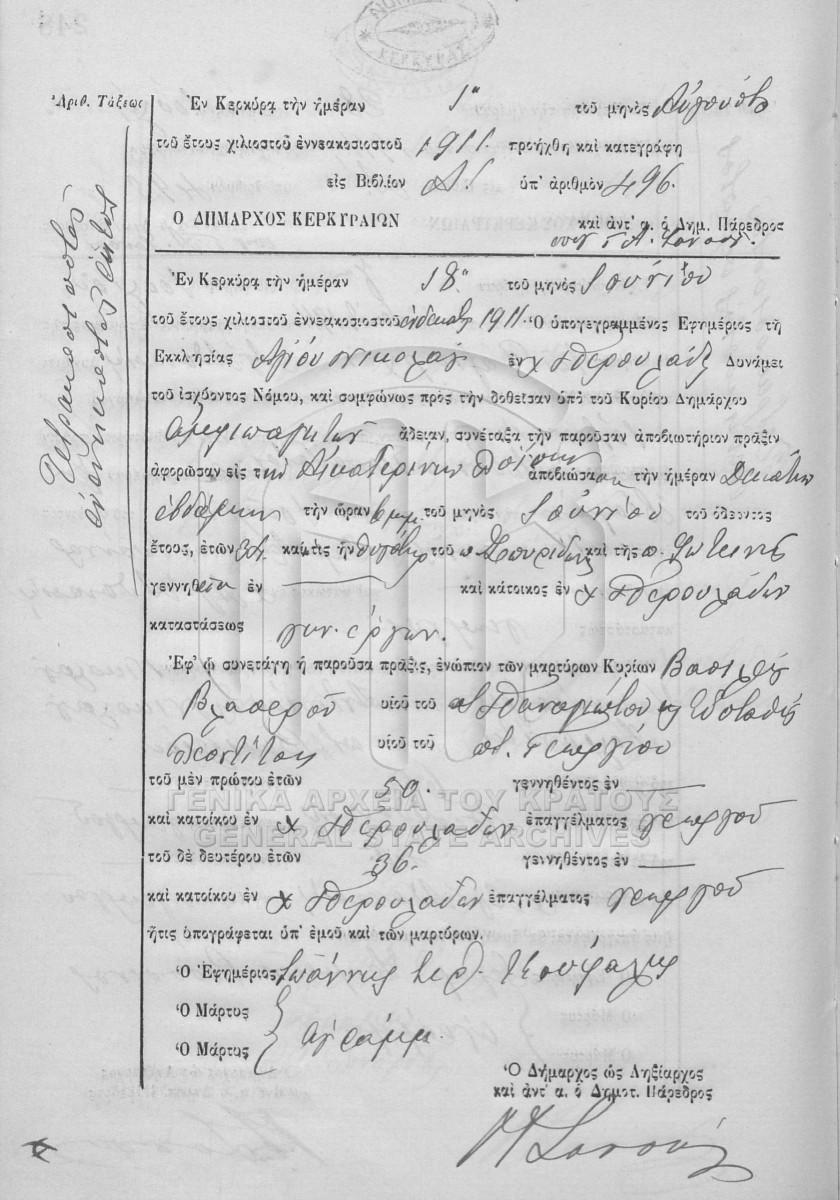 ΚΕΡΚΥΡΑΣ
Ἀριθ. Τάξεως
Τετρακοσιοστὸς
ἐνενηκοστὸς ἕκτος
Ἐν Κερκύρᾳ τὴν ἡμέραν 1η τοῦ μηνὸς Αὐγούστου
τοῦ ἔτους χιλιοστοῦ ἐννεακοσιοστοῦ 1911 προήχθη καὶ κατεγράφη
εἰς Βιβλίον Α΄. ὑπ' ἀριθμὸν 496.
Ο ΔΗΜΑΡΧΟΣ ΚΕΡΚΥΡΑΙΩΝ καὶ ἀντ' α. ὁ Δημ. Πάρεδρος
Ἐν Κερκύρᾳ τὴν ἡμέραν 18η τοῦ μηνὸς Ἰουνίου
τοῦ ἔτους χιλιοστοῦ ἐννεακοσιοστοῦ ἑνδεκάτου 1911 Ὁ ὑπογεγραμμένος Ἐφημέριος τῆς
Ἐκκλησίας Ἁγίου Νικολάου ἐν χ Περουλάδες Δυνάμει
τοῦ ἰσχύοντος Νόμου, καὶ συμφώνως πρὸς τὴν δοθεῖσαν ὑπὸ τοῦ Κυρίου Δημάρχου
ἄδειαν, συνέταξα τὴν παροῦσαν ἀποβιωτήριον πρᾶξιν
ἀφορῶσαν εἰς τὴν Αἰκατερίνην ἀποβιώσασαν τὴν ἡμέραν Δεκάτην
ἑβδόμην τὴν ὥραν 6 μ.μ. τοῦ μηνὸς Ἰουνίου τοῦ ὁδεύοντος
ἔτους, ἐτῶν καὶ τις ἦν θυγάτηρ τοῦ π Σπυρίδων καὶ τῆς π. Φωτεινῆς
γεννηθεῖσα ἐν — καὶ κάτοικος ἐν χ Περουλάδων
καταστάσεως γυν. ἔργων.
Ἐφ' ᾧ συνετάγη ἡ παροῦσα πρᾶξις, ἐνώπιον τῶν μαρτύρων Κυρίων Βασιλείου
Βλασεροῦ υἱοῦ τοῦ Παναγιώτου κ Εὐσταθίου
Λεοντίτση υἱοῦ τοῦ ποτ. Γεωργίου
τοῦ μὲν πρώτου ἐτῶν 50. γεννηθέντος ἐν —
ΓΕΝΙΚΑ ΑΡΧΕΙΑ ΤΟΥ ΚΡΑΤΟΥΣ
καὶ κατοίκου ἐν χ Περουλάδων ἐπαγγέλματος γεωργοῦ
GENERAL STATE ARCHIVES
τοῦ δὲ δευτέρου ἐτῶν 36. γεννηθέντος ἐν —
καὶ κατοίκου ἐν χ Περουλάδων ἐπαγγέλματος γεωργοῦ
ἥτις ὑπογράφεται ὑπ' ἐμοῦ καὶ τῶν μαρτύρων.
Ὁ Ἐφημέριος Ἰωάννης ἱερ.
Ὁ Μάρτυς
Ὁ Μάρτυς ἀγράμμ.
Ὁ Δήμαρχος ὡς Ληξίαρχος
καὶ ἀντ' α. ὁ Δημοτ. Πάρεδρος